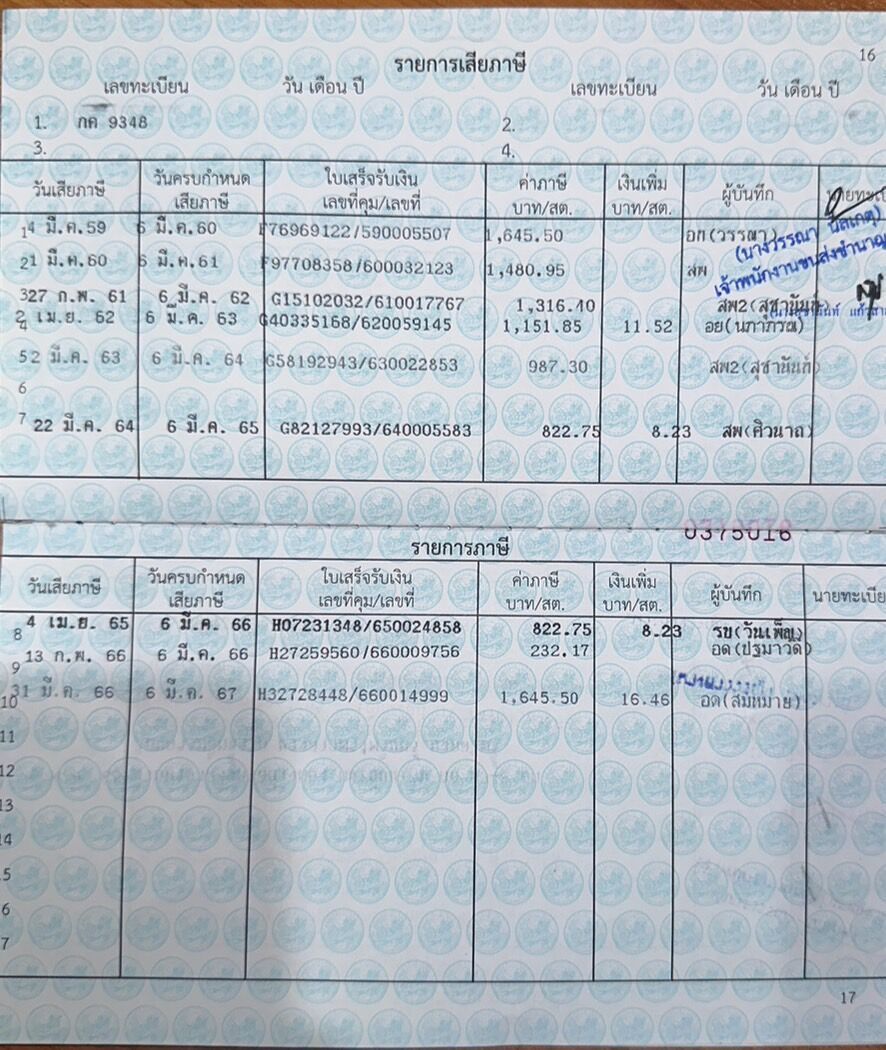 16
รายการเสียภาษี
เลขทะเบียน วัน เดือน ปี เลขทะเบียน วัน เดือน ปี
1. กค 9348 2.
3. 4.
วันเสียภาษี วันครบกำหนด เสียภาษี ใบเสร็จรับเงิน เลขที่คุม/เลขที่ ค่าภาษี บาท/สต. เงินเพิ่ม บาท/สต. ผู้บันทึก
1 4 มี.ค.59 6 มี.ค.60 F76969122/590005507 1,645.50 (วรรณา)
(นางวรรณา
2 1 มี.ค.60 6 มี.ค.61 F97708358/600032123 1,480.95 สพ
เจ้าพนักงานขนส่งชำนาญ
3 27 ก.พ. 61 6 มี.ค. 62 G15102032/610017767 1,316.40 สพ2(สุชานันท์)
4 2 เม.ย. 62 6 มี.ค. 63 G40335168/620059145 1,151.85 11.52 อย(นภาภรณ์)
5 2 มี.ค. 63 6 มี.ค. 64 G58192943/630022853 987.30 สพ2(สุชานันท์)
6
7 22 มี.ค. 64 6 มี.ค. 65 G82127993/640005583 822.75 8.23 สพ(ศิวนาถ)
0375018
รายการภาษี
วันเสียภาษี วันครบกำหนด เสียภาษี ใบเสร็จรับเงิน เลขที่คุม/เลขที่ ค่าภาษี บาท/สต. เงินเพิ่ม บาท/สต. ผู้บันทึก นายทะเบีย
8 4 เม.ย. 65 6 มี.ค. 66 H07231348/650024858 822.75 8.23 รข(วันเพ็ญ)
9 13 ก.พ. 66 6 มี.ค. 66 H27259560/660009756 232.17 อด(ปฐมาวดี)
10 31 มี.ค. 66 6 มี.ค. 67 H32728448/660014999 1,645.50 16.46 อด(สมหมาย)
11
12
13
14
5
6
7
17